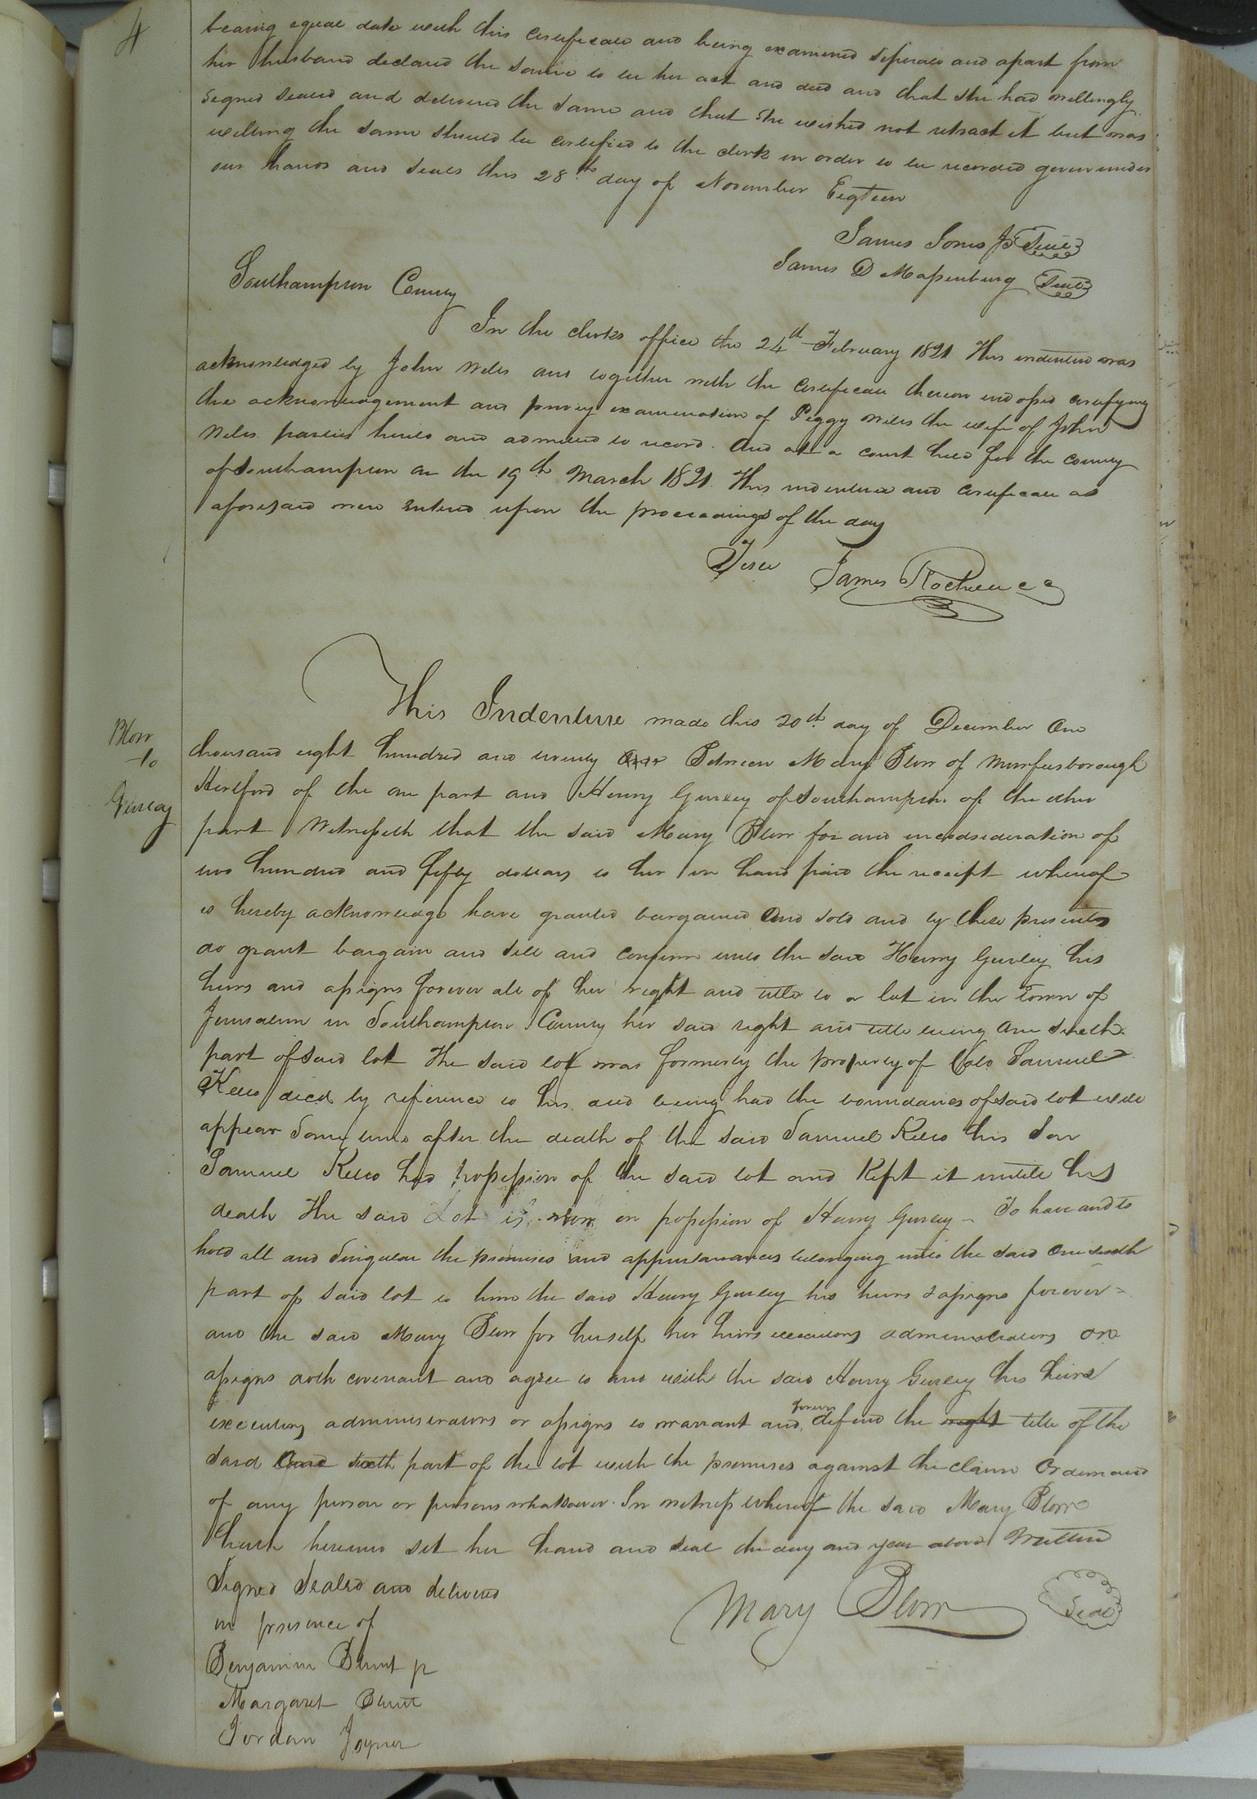 4
bearing equal date with this certificate and being examined seperate and apart from
her husband declared the same to be her act and deed and that she had willingly
signed sealed and delivered the same and that she wished not retract it but was
willing the same should be certified to the clerk in order to be recorded given under
our hands and seals this 28th day of November Eigteen
James Jones Jr Seal
James D Massenburg Seal
Southampton County
In the clerks office the 24th February 1821 This indenture was
acknowledged by John and together with the certificate thereon endorsed certifying
the acknowledgement and privey examination of Peggy the wife of John
parties hereto and admitted to record. And at a court held for the county
of Southampton on the 19th March 1821 This indenture and certificate as
aforesaid were entered upon the proceedings of the day
Teste James Rochelle cc
Blow
to
Gurley
This Indenture made this 20th day of December One
thousand eight hundred and twenty Between Mary Blow of Murfeesborough
Hertford of the one part and Henry Gurley of Southampton of the other
part Witnesseth that the said Mary Blow for and in considseration of
two hundred and fifty dollars to her in hand paid the receipt whereof
is hereby acknowledge have granted bargained and sold and by these presents
do grant bargain and sell and confirm unto the said Henry Gurley his
heirs and assigns forever all of her right and title to a lot in the Town of
Jerusalem in Southampton County her said right and title being one sixth
part of said lot The said lot was formerly the property of Colo Samuel
Kello decd by reference to his deed being had the boundaries of said lot will
appear Some time after the death of the said Samuel Kello his son
Samuel Kello had possession of the said lot and kept it untill his
death The said Lot is now in possession of Henry Gurley - To have and to
hold all and singular the premises and appurtanances belonging unto the said one sixth
part of said lot to him the said Henry Gurley his heirs & assigns forever -
and the said Mary Blow for herself her heirs executors administrators or
assigns doth covenant and agree to and with the said Henry Gurley his heirs
executors administrators or assigns to warrant and forever defend the right title of the
said One sixth part of the lot with the premises against the claim or demand
of any person or persons whatsoever. In witness whereof the said Mary Blow
hath hereunto set her hand and seal the day and year above Written
Signed Sealed and delivered
in presence of
Mary Blow Seal
Benjamin Blunt jr
Margaret Blunt
Jordan Joyner